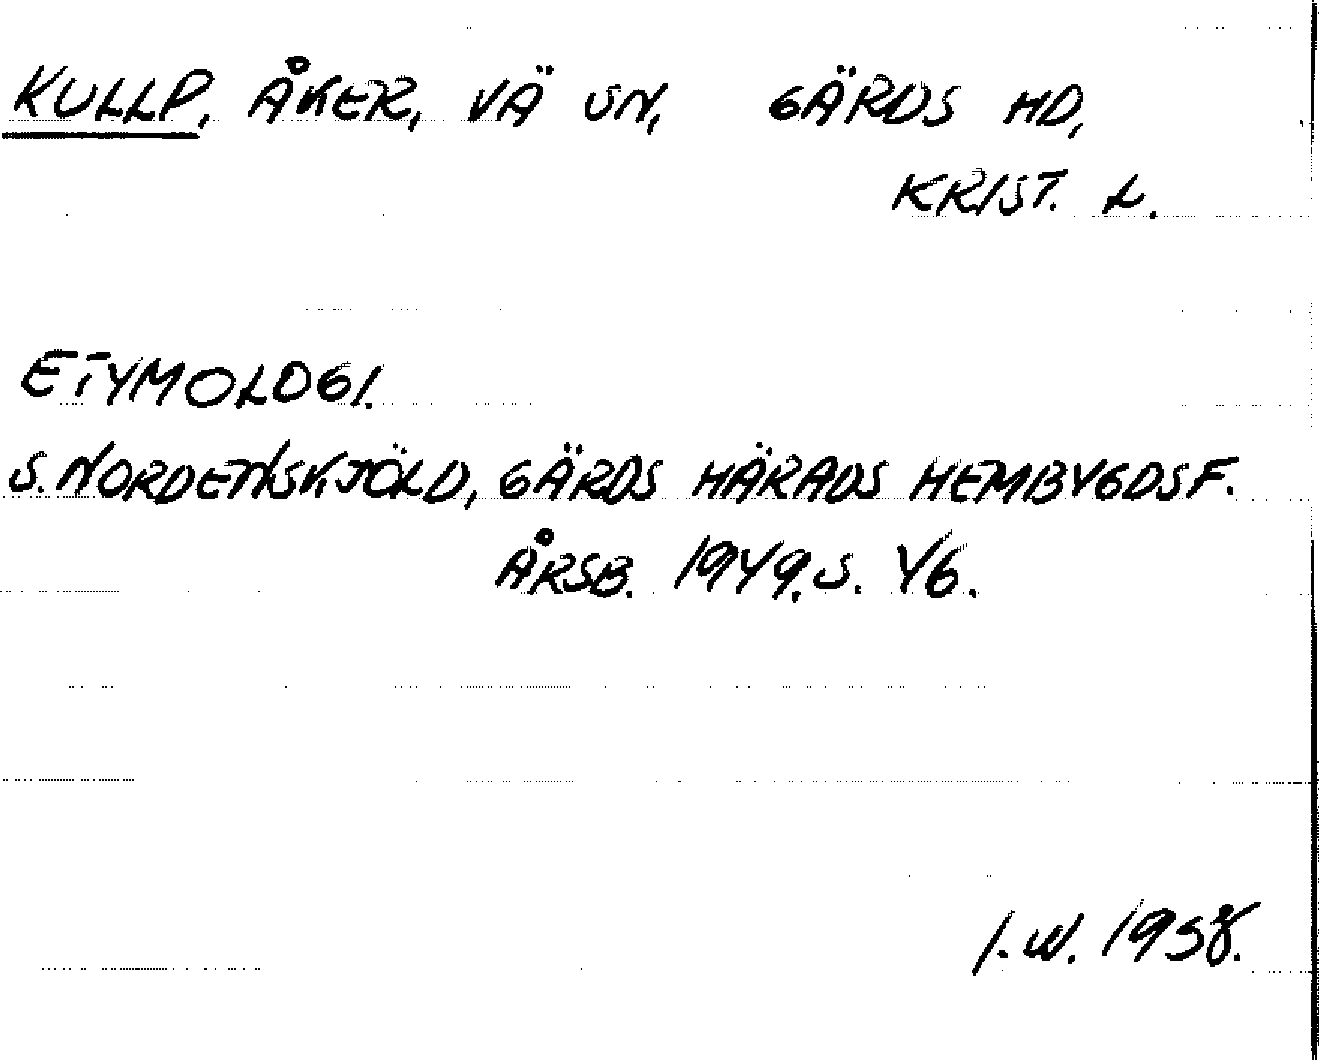 KULLP, ÅKER, VÄ SN, GÄRDS HD,
KRIST. L.
ETYMOLOGI.
S. NORDENSKJÖLD, GÄRDS HÄRADS HEMBYGDSF.
ÅRSB. 1949. S. 46.
I.W. 1958.